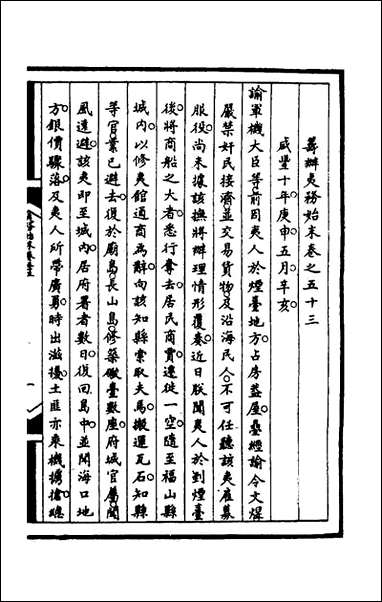 籌辦夷務始末卷之五十三
咸豐十年庚申五月辛亥
諭軍機大臣等前因夷人於煙臺地方占房蓋屋疊經諭令文煜
嚴禁奸民接濟並交易貨物及沿海民人不可任聽該夷雇募
服役尚未據該撫將辦理情形覆奏近日朕聞夷人於到煙臺
後將商船之大者悉行奪去居民商賈遷徙一空隨至福山縣
城內以修夷館通商為辭向該知縣索取夫馬搬運瓦石知縣
等官業已避去復於廟島長山島修築礮臺數座府城官員聞
風遠避該夷即至城內居府署者數日復回島中並聞海口地
方銀價驟落及夷人所帶廣勇時出滋擾土匪亦乘機搶總